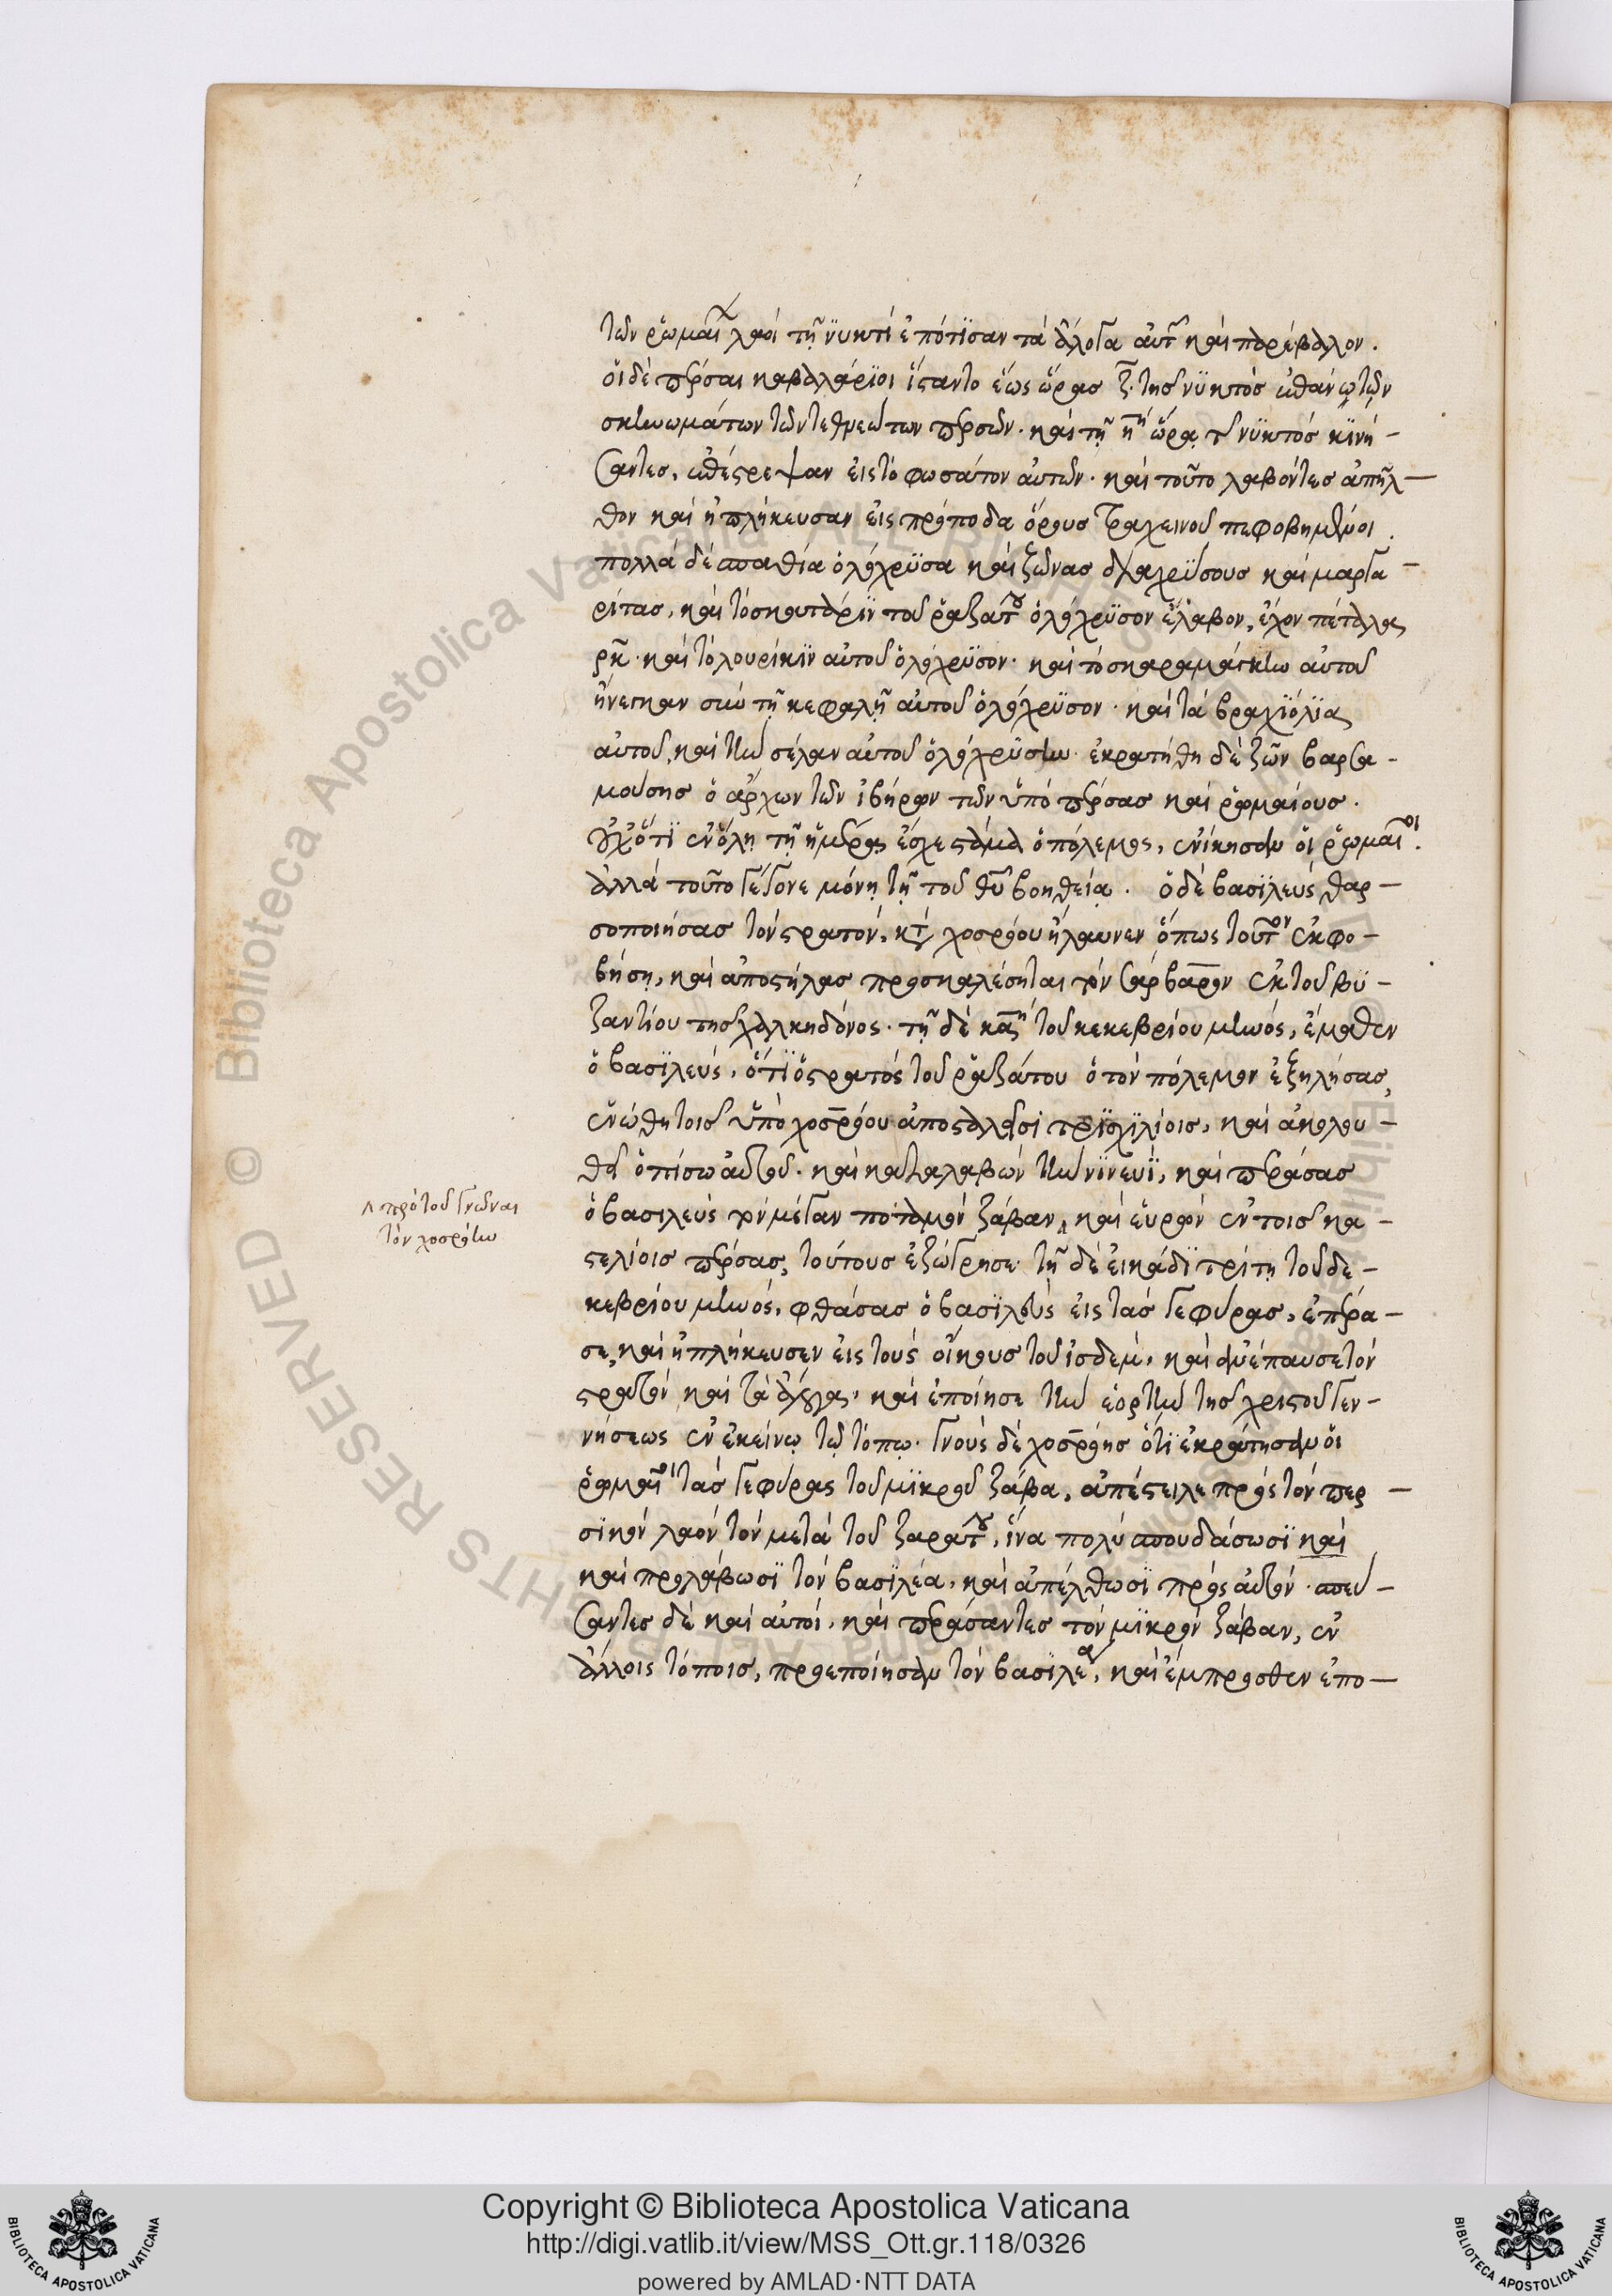 τῶν ῥωμαί λαοὶ τῇ νϋκτὶ ἐπότϊσαν τὰ ἄλογα αὐτ καὶ παρέβαλον.
οἱ δὲ πέρσαι καβαλάρϊοι ἵσταντο ἕως ὥρας ζ. τῆς νϋκτὸς ἐπάνω τῶν
σκηνωμάτων τῶν τεθνεώτων περσῶν. καὶ τῇ η ὥρᾳ τ νϋκτός κϊνή-
σαντες, ἐπέστρεψαν εἰς τὸ φωσάτον αὐτῶν. καὶ τοῦτο λαβόντες ἀπῆλ-
θον καὶ ἠπλήκευσαν εἰς πρόποδα ὄρους τραχεινοῦ πεφοβημένοι.
πολλὰ δὲ σπαθία ὁλόχρϋσα καὶ ζώνας διαχρϋσους καὶ μαργα-
ρίτας, καὶ τὸ σκουτάριν τοῦ ῥαζάτου ὁλόχρϋσον ἔλαβον, ἔχον πέταλας
ρκ. καὶ τὸ λουρίκϊν αὐτοῦ ὁλόχρϋσον. καὶ τὸ σκαραμάγκην αὐτοῦ
ἤνεγκαν σὺν τῇ κεφαλῇ αὐτοῦ ὁλόχρϋσον. καὶ τὰ βραχϊόλϊα
αὐτοῦ, καὶ τὴν σέλαν αὐτοῦ ὁλόχρϋσην. ἐκρατήθη δὲ ζῶν βαρσα-
μούσης ὁ ἄρχων τῶν ἰβήρων τῶν ὑπὸ πέρσας καὶ ῥωμαίους.
οὐχ ὅτϊ ἐν ὅλῃ τῇ ἡμέρᾳ ἐσχε στάμα ὁ πόλεμος, ἐνίκησαν οἱ ῥωμαῖοι.
ἀλλὰ τοῦτο γέγονε μόνῃ τῇ τοῦ θυ βοηθείᾳ. ὁ δὲ βασϊλεὺς θαρ-
σοποιήσας τὸν στρατόν, κτ χοσρόου ἤλαυνεν ὅπως τοῦτον ἐκφο-
βήσῃ, καὶ ἀποστήλας προσκαλέσηται τὸν σάρβαρον ἐκ τοῦ βϋ-
ζαντίου τῆς χαλκηδόνος. τῇ δὲ κας τοῦ κεκεβρίου μηνός, ἔμαθεν
ὁ βασϊλεύς, ὅτϊ ὁ στρατὸς τοῦ ῥαζάτου ὁ τὸν πόλεμον ἐξηλήσας,
ἐνώθη τοῖς ὑπὸ χοσρόου ἀποσταλεῖσϊ τρϊσχϊλίοις, καὶ ἀκολου-
θεῖ ὀπίσω αὐτοῦ. καὶ καταλαβὼν τὴν νϊνευῒ, καὶ περάσας
ὁ βασιλεὺς τὸν μέγαν ποταμὸν ζάβαν, καὶ εὑρὼν ἐν τοῖς κα-
στελίοις πέρσας, τούτους ἐξώγρησε. τῇ δὲ εἰκάδϊ τρίτῃ τοῦ δε-
κεβρίου μηνός, φθάσας ὁ βασϊλεὺς εἰς τὰς γεφύρας, ἐπέρα-
σε, καὶ ἠπλήκευσεν εἰς τοὺς οἴκους τοῦ ἰσδεμ, καὶ ἀνέπαυσε τὸν
στρατὸν καὶ τὰ ἄλογα. καὶ ἐποίησε τὴν ἑορτὴν τῆς χριστοῦ γεν-
νήσεως ἐν ἐκείνῳ τῷ τόπῳ. γνοὺς δὲ χοσρόης ὅτϊ ἐκράτησαν οἱ
ῥωμαῖοι τὰς γεφύρας τοῦ μϊκροῦ ζάβα, ἀπέστειλε πρὸς τὸν περ-
σϊκὸν λαὸν τὸν μετὰ τοῦ ζαράτου, ἵνα πολὺ σπουδάσωσϊ καὶ
καὶ προλάβωσϊ τὸν βασϊλέα, καὶ ἀπέλθωσϊ πρὸς αὐτόν. σπεύ-
σαντες δὲ καὶ αὐτοί, καὶ περάσαντες τὸν μϊκρὸν ζάβαν, ἐν
ἄλλοις τόποις, προεποίησαν τὸν βασϊλέα, καὶ ἔμπροσθεν ἐπο-
πρὸ τοῦ γνῶναι
τὸν χοσρόην
Copyright © Biblioteca Apostolica Vaticana
http://digi.vatlib.it/view/MSS_Ott.gr.118/0326
powered by AMLAD·NTT DATA